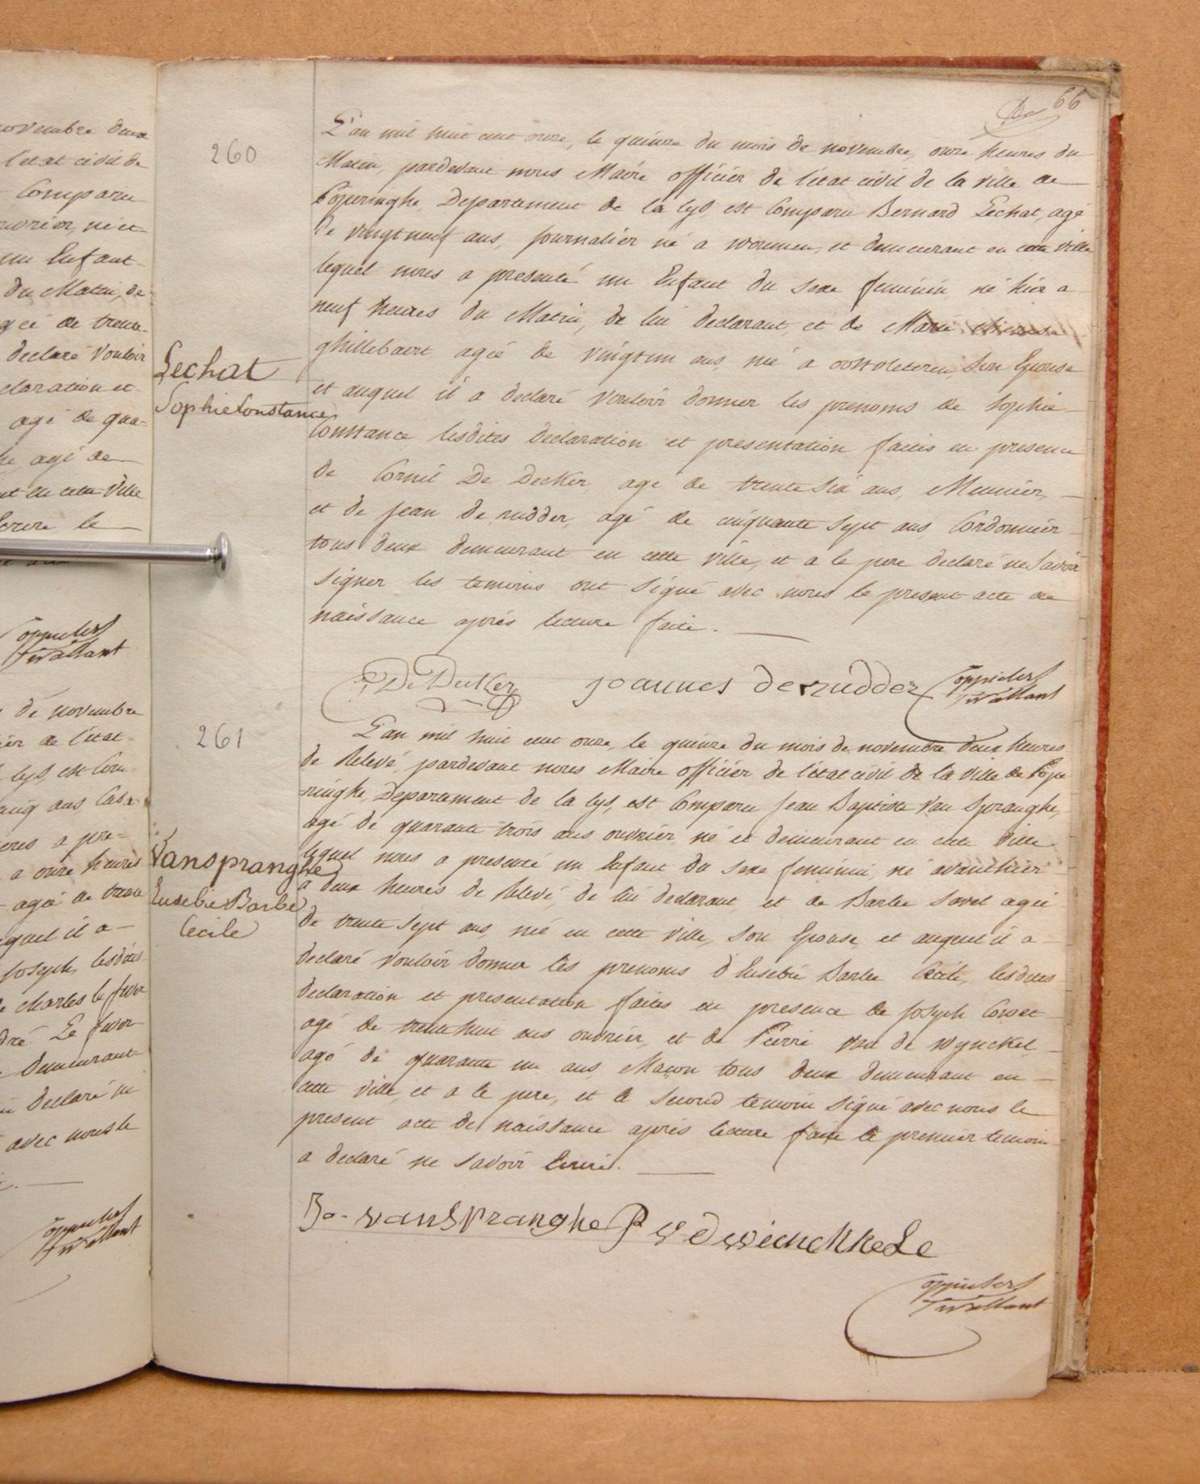 ovembre deux
l'etat civil de
Comparu
né et
un Enfant
du Matin, de
agée de trente
declaré vouloir
claration et
agé de qua-
agé de
ant en cette Ville
Ecrire le
de novembre
cier de l'etat
Lys est Com
cinq ans
a pre-
a onze heures
agée de trente
quel il a
Joseph, lesdites
Charles le
demeurant
declaré ne
avec nous le
66
260
L'an mil huit cent onze, le quinze du mois de novembre, onze heures du
Matin, pardevant nous Maire officier de l'etat civil de la ville de
Poperinghe Departement de la Lys est Comparu Bernard Lechat, agé
de vingtneuf ans, Journalier né a woumen, et demeurant en cette ville
lequel nous a presenté un Enfant du sexe feminin né hier a
neuf heures du Matin, de lui declarant et de Marie
ghillebaert agée de vingtun ans née a oostvleteren, Son Epouse
Lechat
Sophie Constance
et auquel il a declaré vouloir donner les prenoms de Sophie
Constance lesdites declaration et presentation faites en presence
de Cornil De Decker agé de trente six ans, Meunier,
et de Jean de rudder, agé de cinquante sept ans Cordonnier
tous deux demeurant en cette ville, et a le pere declaré ne Savoir
signer les temoins ont Signé avec nous le present acte de
naissance après lecture faite.
De Decker Joannes de rudder
261
L'an mil huit cent onze, le quinze du mois de novembre deux heures
de Relevé, pardevant nous Maire officier de l'etat civil de la ville de Pope
ringhe Departement de la Lys, est Comparu Jean Baptiste Van Spranghe,
agé de quarante trois ans ouvrier né et demeurant en cette ville
lequel nous a presenté un Enfant du Sexe feminin, né avanthier
Vanspranghe
Eusebie Barbe
Cecile
a deux heures de Relevé, de lui declarant et de Barbe agée
de trente sept ans née en cette ville, Son Epouse et auquel il a
declaré vouloir donner les prenoms d'Eusebie Barbe Cecile, lesdites
declaration et presentation faites en presence de Joseph
agé de trentehuit ans ouvrier, et de Pierre Van de wynckel
agé de quarante un ans Macon tous deux demeurant en
cette ville, et a le pere, et le second temoin signé avec nous le
present acte de naissance après lecture faite le premier temoin
a declaré ne Savoir Ecrire.
vanspranghe P v d weinckkele